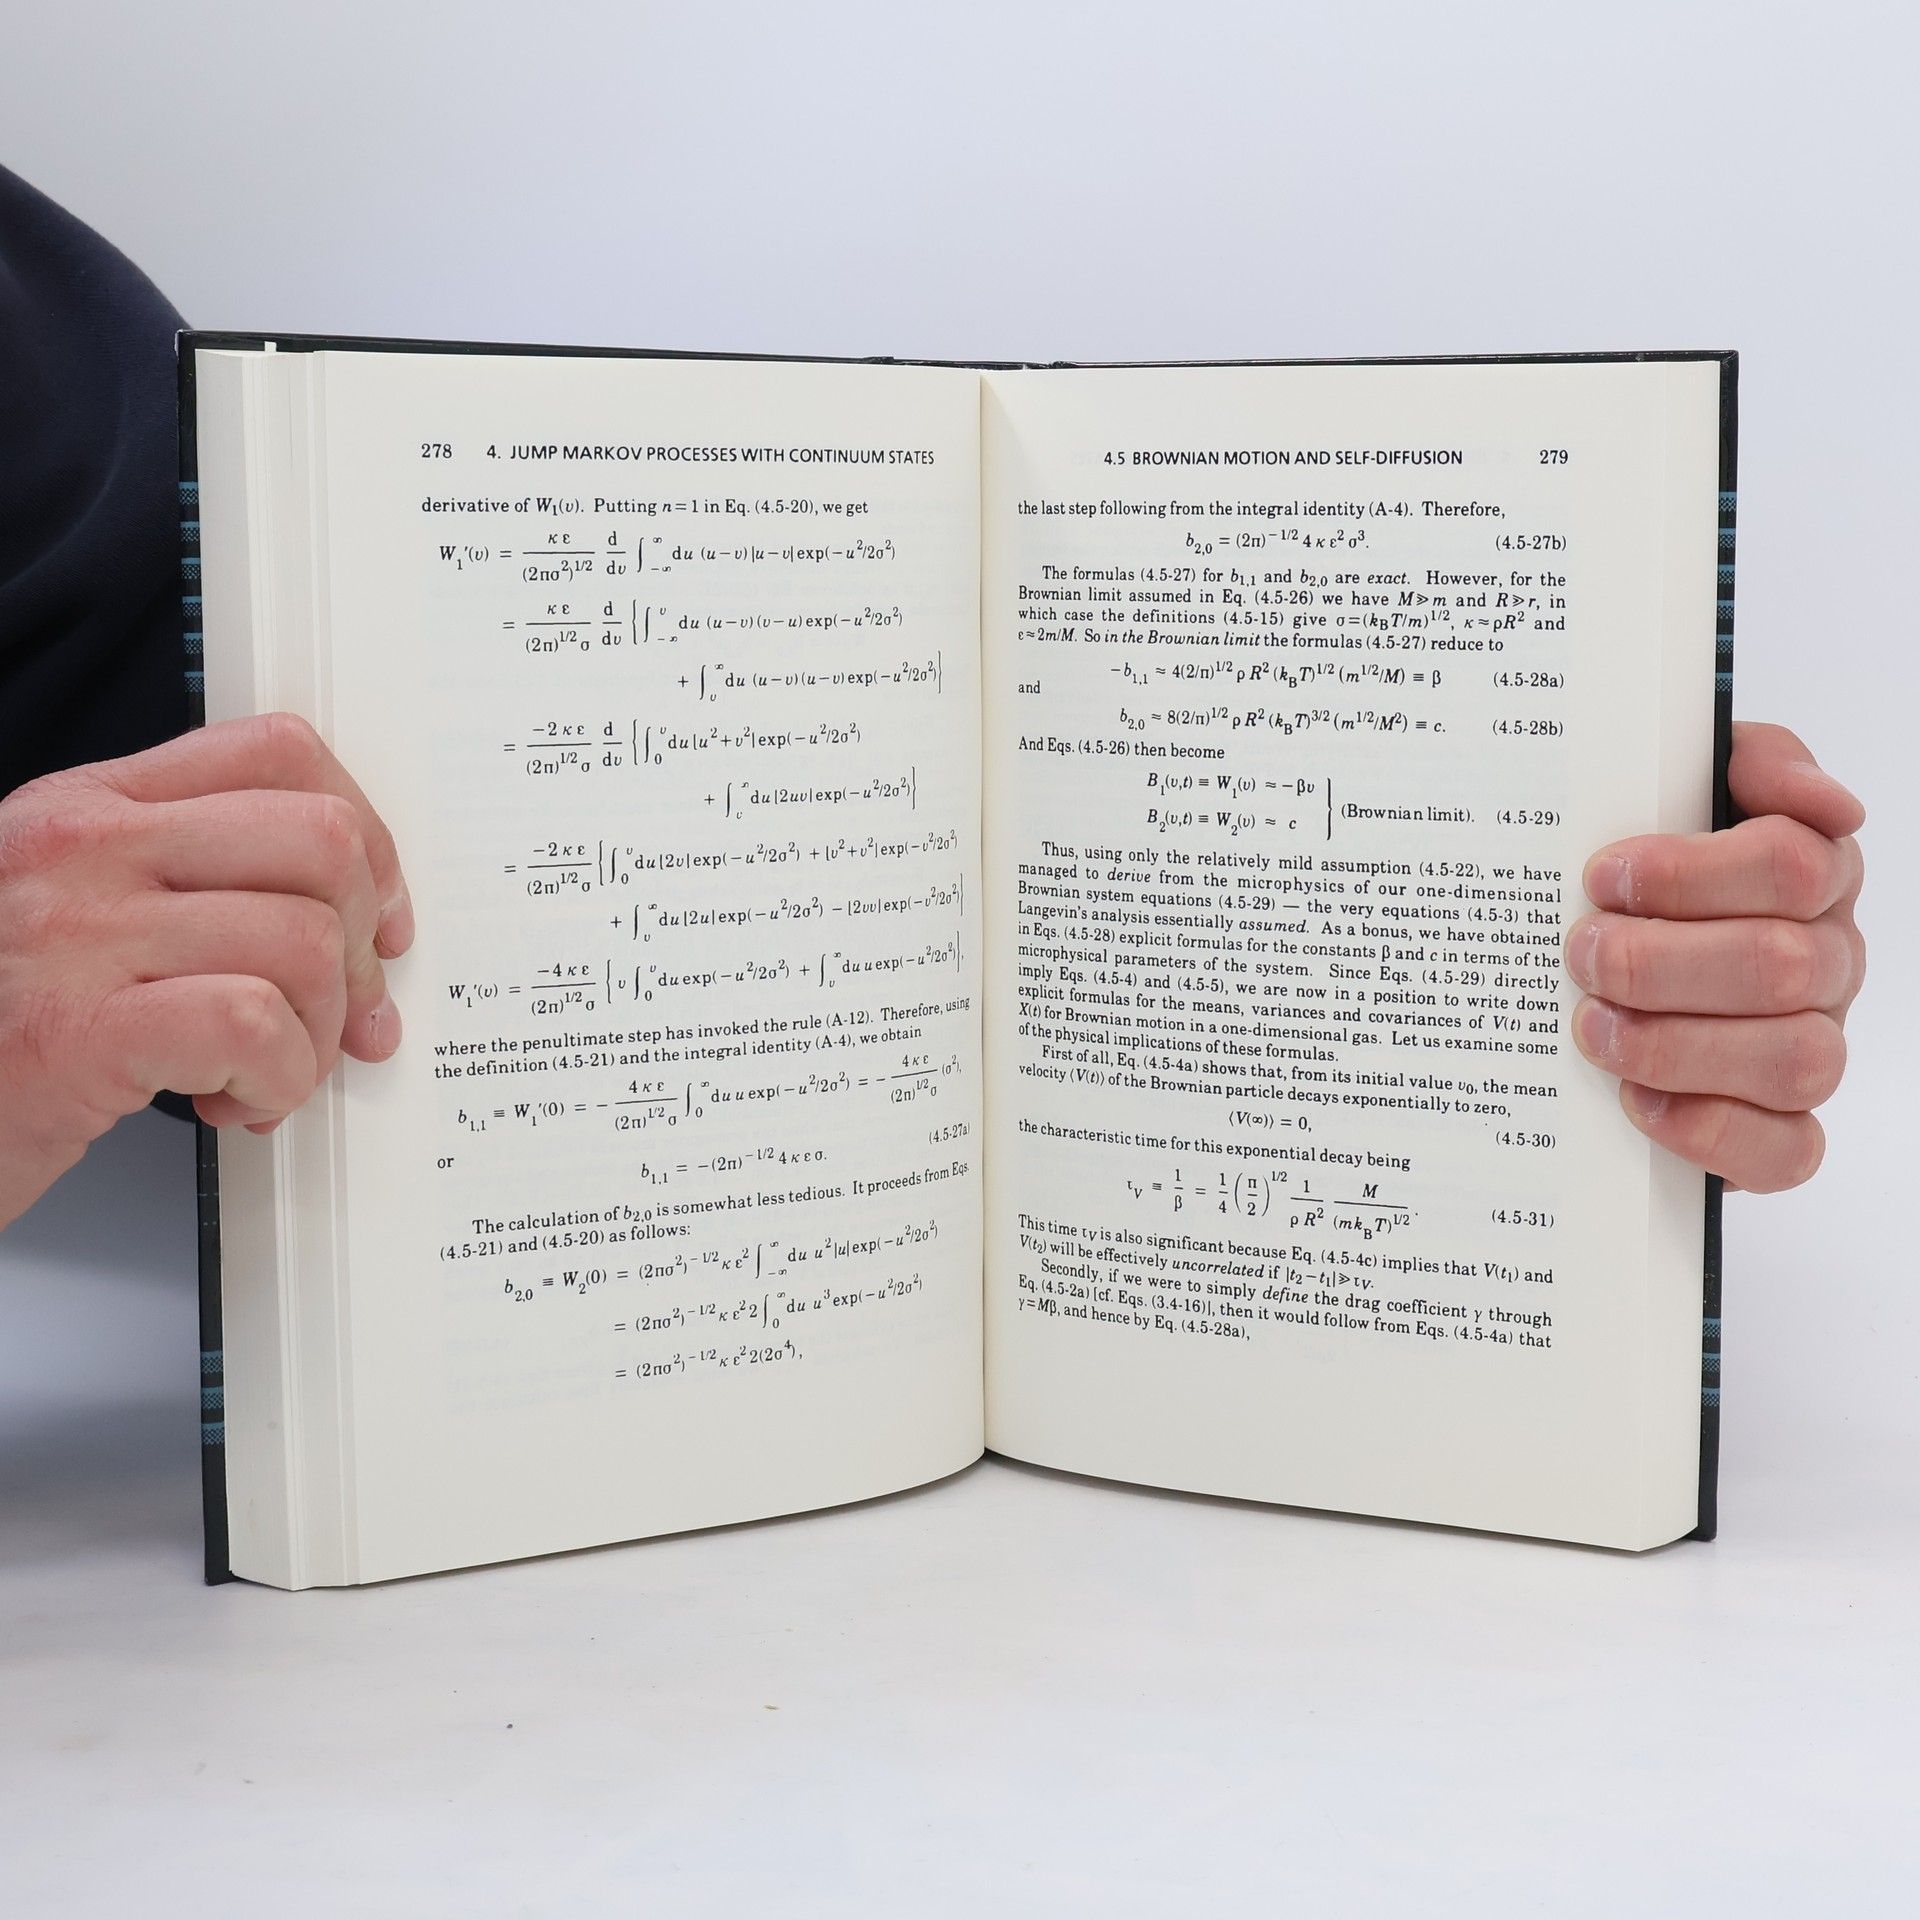 278 4. JUMP MARKOV PROCESSES WITH CONTINUUM STATES
derivative of W₁(υ). Putting n=1 in Eq. (4.5-20), we get
W₁′(υ) = κε/(2πσ²)^1/2 d/dυ ∫_−∞^∞ du (u−υ)|u−υ| exp(−u²/2σ²)
= κε/(2π)^1/2 σ d/dυ { ∫_−∞^υ du (u−υ)(υ−u) exp(−u²/2σ²)
+ ∫_υ^∞ du (u−υ)(u−υ) exp(−u²/2σ²) }
= −2κε/(2π)^1/2 σ d/dυ { ∫_0^υ du [u²+υ²] exp(−u²/2σ²)
+ ∫_υ^∞ du [2uυ] exp(−u²/2σ²) }
= −2κε/(2π)^1/2 σ { ∫_0^υ du [2υ] exp(−u²/2σ²) + [υ²+υ²] exp(−υ²/2σ²)
+ ∫_υ^∞ du [2u] exp(−u²/2σ²) − [2υυ] exp(−υ²/2σ²) }
W₁′(υ) = −4κε/(2π)^1/2 σ { υ ∫_0^υ du exp(−u²/2σ²) + ∫_υ^∞ du u exp(−u²/2σ²) },
where the penultimate step has invoked the rule (A-12). Therefore, using
the definition (4.5-21) and the integral identity (A-4), we obtain
b₁,₁ ≡ W₁′(0) = − 4κε/(2π)^1/2 σ ∫_0^∞ du u exp(−u²/2σ²) = − 4κε/(2π)^1/2 σ (σ²),
or
b₁,₁ = −(2π)^−1/2 4κεσ. (4.5-27a)
The calculation of b₂,₀ is somewhat less tedious. It proceeds from Eqs.
(4.5-21) and (4.5-20) as follows:
b₂,₀ ≡ W₂(0) = (2πσ²)^−1/2 κε² ∫_−∞^∞ du u²|u| exp(−u²/2σ²)
= (2πσ²)^−1/2 κε² 2 ∫_0^∞ du u³ exp(−u²/2σ²)
= (2πσ²)^−1/2 κε² 2(2σ⁴),
4.5 BROWNIAN MOTION AND SELF-DIFFUSION 279
the last step following from the integral identity (A-4). Therefore,
b₂,₀ = (2π)^−1/2 4κε²σ³. (4.5-27b)
The formulas (4.5-27) for b₁,₁ and b₂,₀ are exact. However, for the
Brownian limit assumed in Eq. (4.5-26) we have M≫m and R≫r, in
which case the definitions (4.5-15) give σ=(k_BT/m)^1/2, κ≈ρR² and
ε≈2m/M. So in the Brownian limit the formulas (4.5-27) reduce to
−b₁,₁ ≈ 4(2/π)^1/2 ρR² (k_BT)^1/2 (m^1/2/M) ≡ β (4.5-28a)
and
b₂,₀ ≈ 8(2/π)^1/2 ρR² (k_BT)^3/2 (m^1/2/M²) ≡ c. (4.5-28b)
And Eqs. (4.5-26) then become
B₁(υ,t) ≡ W₁(υ) ≈ −βυ
B₂(υ,t) ≡ W₂(υ) ≈ c } (Brownian limit). (4.5-29)
Thus, using only the relatively mild assumption (4.5-22), we have
managed to derive from the microphysics of our one-dimensional
Brownian system equations (4.5-29) — the very equations (4.5-3) that
Langevin's analysis essentially assumed. As a bonus, we have obtained
in Eqs. (4.5-28) explicit formulas for the constants β and c in terms of the
microphysical parameters of the system. Since Eqs. (4.5-29) directly
imply Eqs. (4.5-4) and (4.5-5), we are now in a position to write down
explicit formulas for the means, variances and covariances of V(t) and
X(t) for Brownian motion in a one-dimensional gas. Let us examine some
of the physical implications of these formulas.
First of all, Eq. (4.5-4a) shows that, from its initial value υ₀, the mean
velocity ⟨V(t)⟩ of the Brownian particle decays exponentially to zero,
⟨V(∞)⟩ = 0, (4.5-30)
the characteristic time for this exponential decay being
τ_V ≡ 1/β = 1/4 (π/2)^1/2 1/ρR² M/(mk_BT)^1/2. (4.5-31)
This time τ_V is also significant because Eq. (4.5-4c) implies that V(t₁) and
V(t₂) will be effectively uncorrelated if |t₂−t₁|≫τ_V.
Secondly, if we were to simply define the drag coefficient γ through
Eq. (4.5-2a) [cf. Eqs. (3.4-16)], then it would follow from Eqs. (4.5-4a) that
γ=Mβ, and hence by Eq. (4.5-28a),